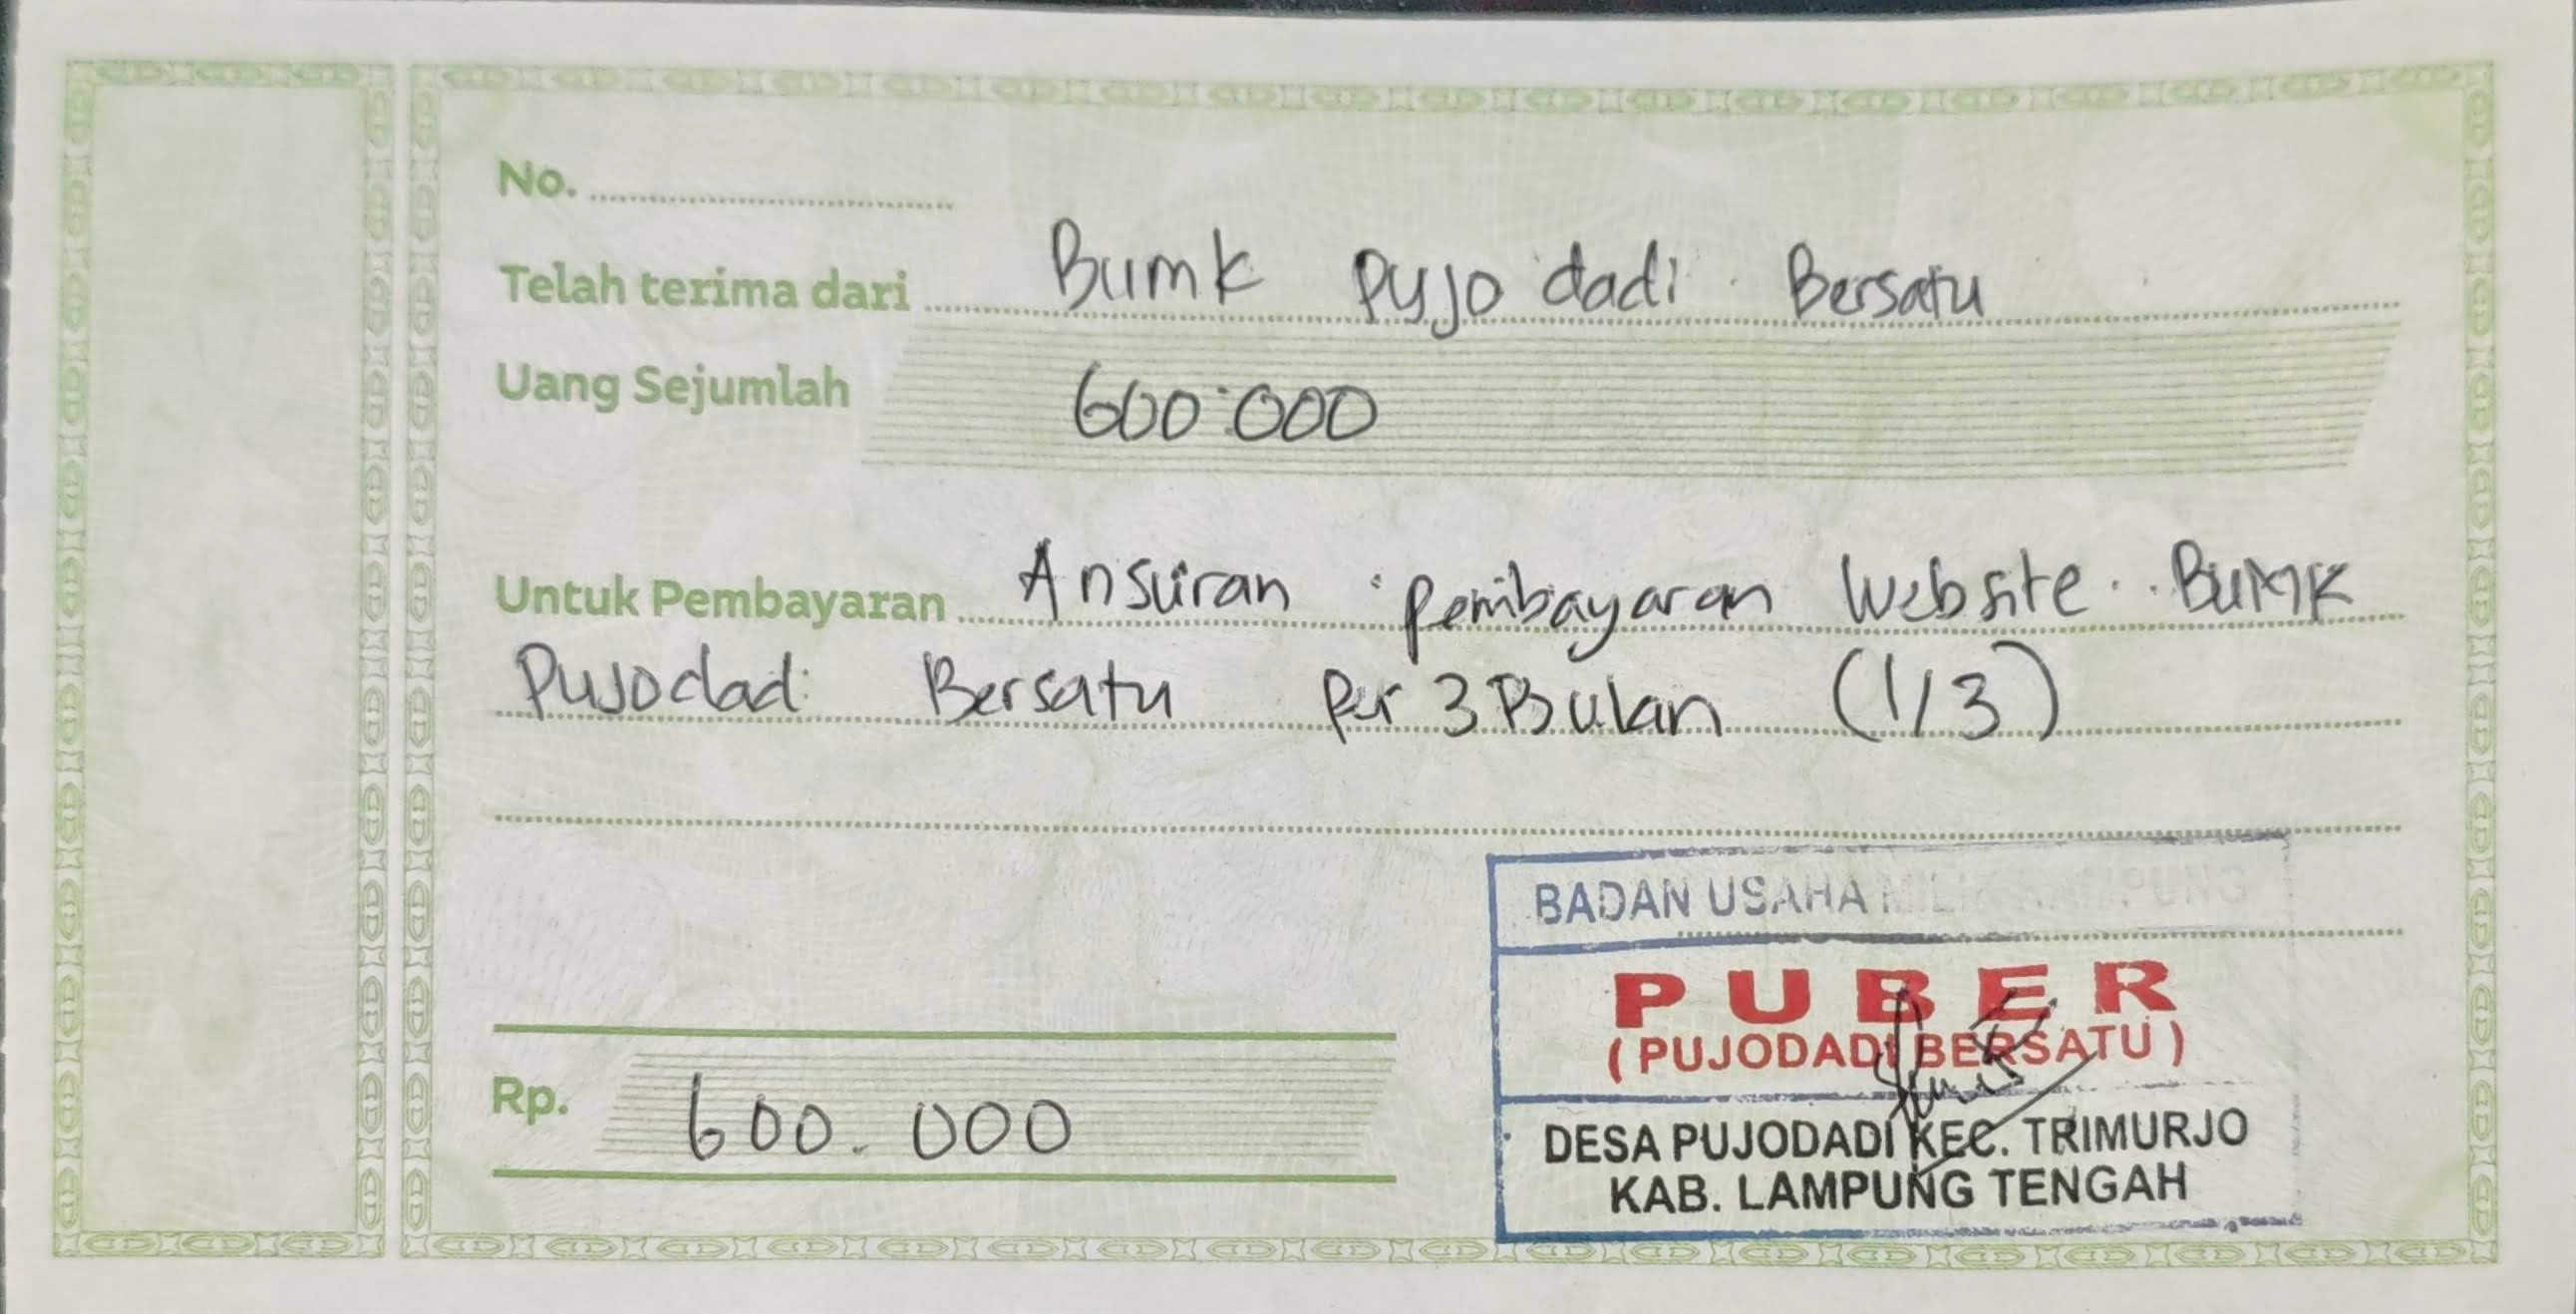 No.
Telah terima dari Bumk Pujo dadi Bersatu
Uang Sejumlah 600.000
Untuk Pembayaran Ansuran pembayaran Website BUMK
Pujodadi Bersatu Per 3 Bulan (1/3)
BADAN USAHA
PUBER
( PUJODADI BERSATU )
Rp. 600.000
DESA PUJODADI KEC. TRIMURJO
KAB. LAMPUNG TENGAH